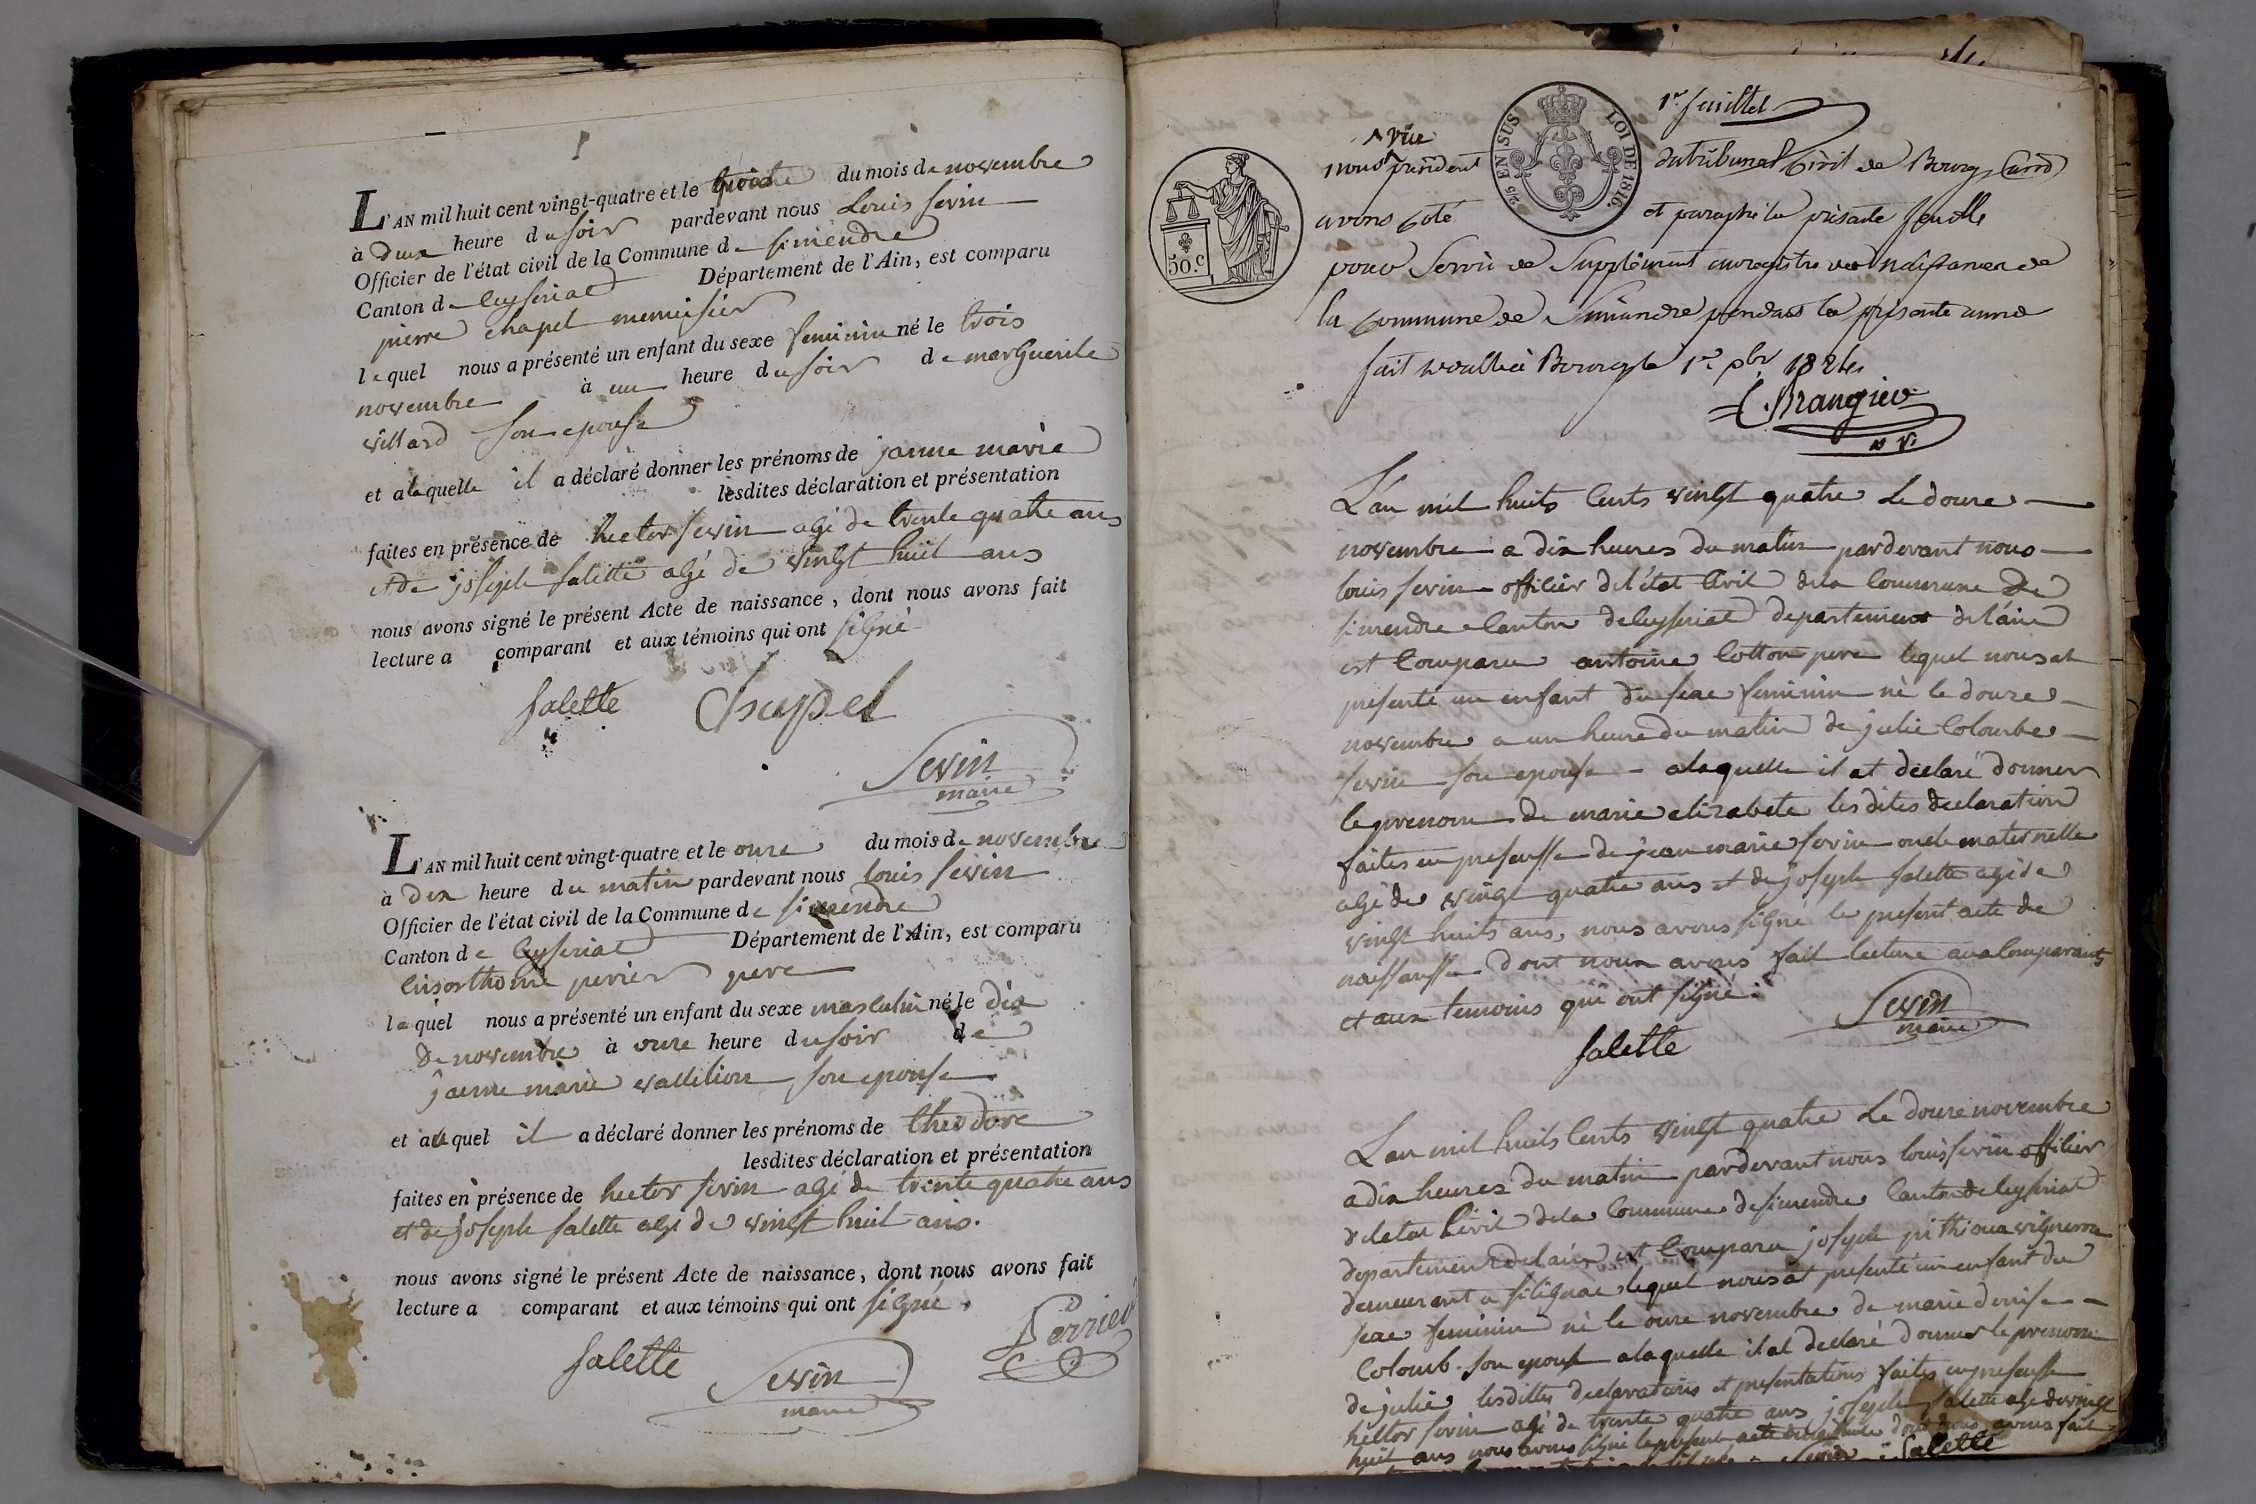 L'AN mil huit cent vingt-quatre et le du mois de novembre
à deux heure du soir pardevant nous Louis sevin
Officier de l'état civil de la Commune de simendre
Canton de Ceyseriat Département de l'Ain, est comparu
pierre chapel menuisier
lequel nous a présenté un enfant du sexe feminin né le trois
novembre à un heure du soir de marguerite
villard son epouse
et a laquelle il a déclaré donner les prénoms de janne marie
lesdites déclaration et présentation
faites en présence de hector sevin agé de trente quatre ans
et de joseph salette agé de vingt huit ans
nous avons signé le présent Acte de naissance, dont nous avons fait
lecture a comparant et aux témoins qui ont signé
salette Chapel
Sevin
maire
L'AN mil huit cent vingt-quatre et le onze du mois de novembre
à dix heure du matin pardevant nous louis sevin
Officier de l'état civil de la Commune de simendre
Canton de Ceyseriat Département de l'Ain, est comparu
perier pere
lequel nous a présenté un enfant du sexe masculin né le dix
de novembre à onze heure du soir de
janne marie son epouse
et auquel il a déclaré donner les prénoms de theodore
lesdites déclaration et présentation
faites en présence de hector sevin agé de trente quatre ans
et de joseph salette agé de vingt huit ans.
nous avons signé le présent Acte de naissance, dont nous avons fait
lecture a comparant et aux témoins qui ont signé.
salette Sevin Perrier
maire
1er feuillet
2/5 EN SUS LOI DE 1816.
50.c
vice
nous président du tribunal Civil de Bourg
avons coté et paraphé la présente feuille
pour servir de Supplément au registre des naissances de
la Commune de Simandre pendant la présente année
fait à Bourg le 1er 9bre 1824
Brangier
v. p.
L'an mil huits cents vingt quatre Le douze
novembre a dix heures du matin pardevant nous
louis sevin officier de l'état civil de la Commune De
simendre Canton de Ceyseriat departement de l'ain
est Comparu antoine Cotton pere lequel nous at
presenté un enfant du sexe feminin né le douze
novembre a un heure du matin de julie Colombe
sevin son epouse alaquelle il at déclaré donner
le prenom de marie elizabete les dites declaration
faites en presensse de jean marie sevin oncle maternelle
agé de vingt quatre ans et de joseph salette agé de
vingt huits ans, nous avons signé le present acte de
naissansse dont nous avons fait lecture aux Comparants
et aux temoins qui ont signé.
Sevin
maire
salette
L'an mil huits cents vingt quatre Le douze novembre
a dix heures du matin pardevant nous louis sevin officier
de letat Civil de la Commune de simendre Canton de Ceyseriat
departement de lain est Comparu joseph pithioux vigneron
demeurant a silignac lequel nous at presenté un enfant du
sexe feminin né le onze novembre de marie denise
Colomb son epouse a laquelle il at declaré donner le prenom
de julie lesdittes declarations et presentations faites en presensse
hector sevin agé de trente quatre ans joseph salette age de vingt
huit ans nous avons signé le present acte dont nous avons fait
Sevin salette